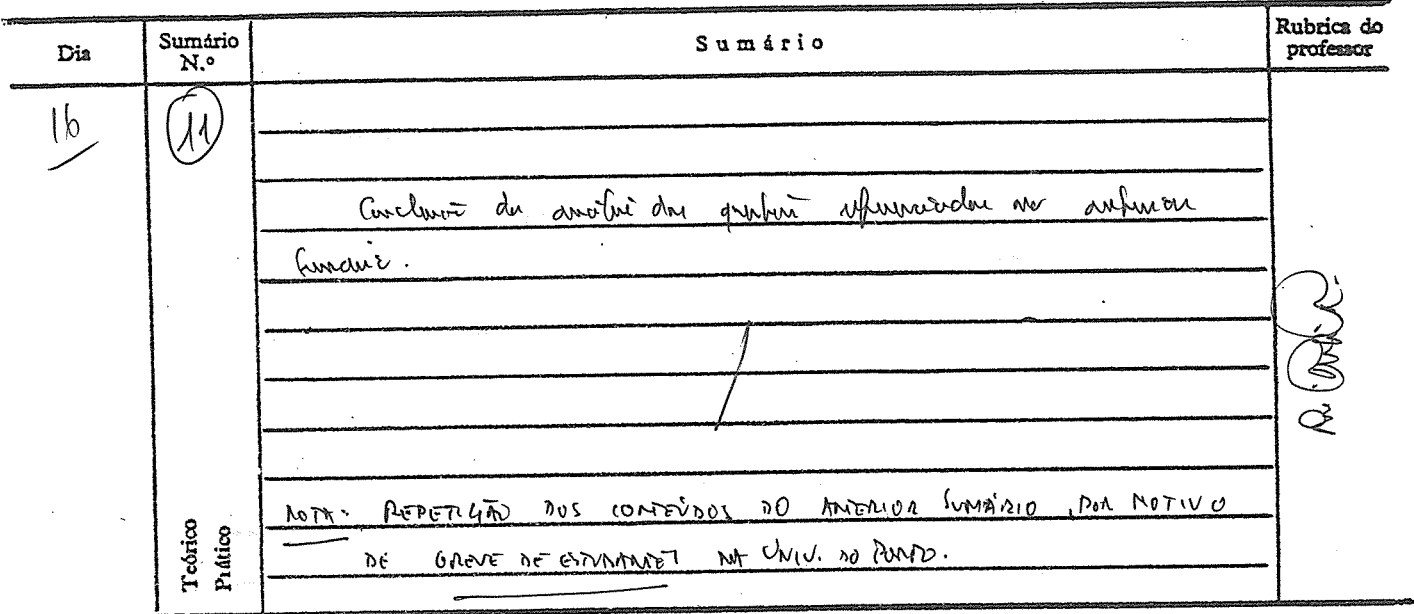 Dia
Sumário N.º
Sumário
Rubrica do professor
16
11
Conclusão da análise das questões referenciadas no anterior
sumário.
NOTA: REPETIÇÃO DOS CONTEÚDOS DO ANTERIOR SUMÁRIO, POR MOTIVO
DE GREVE DE ESTUDANTES NA UNIV. DO PORTO.
Teórico
Prático